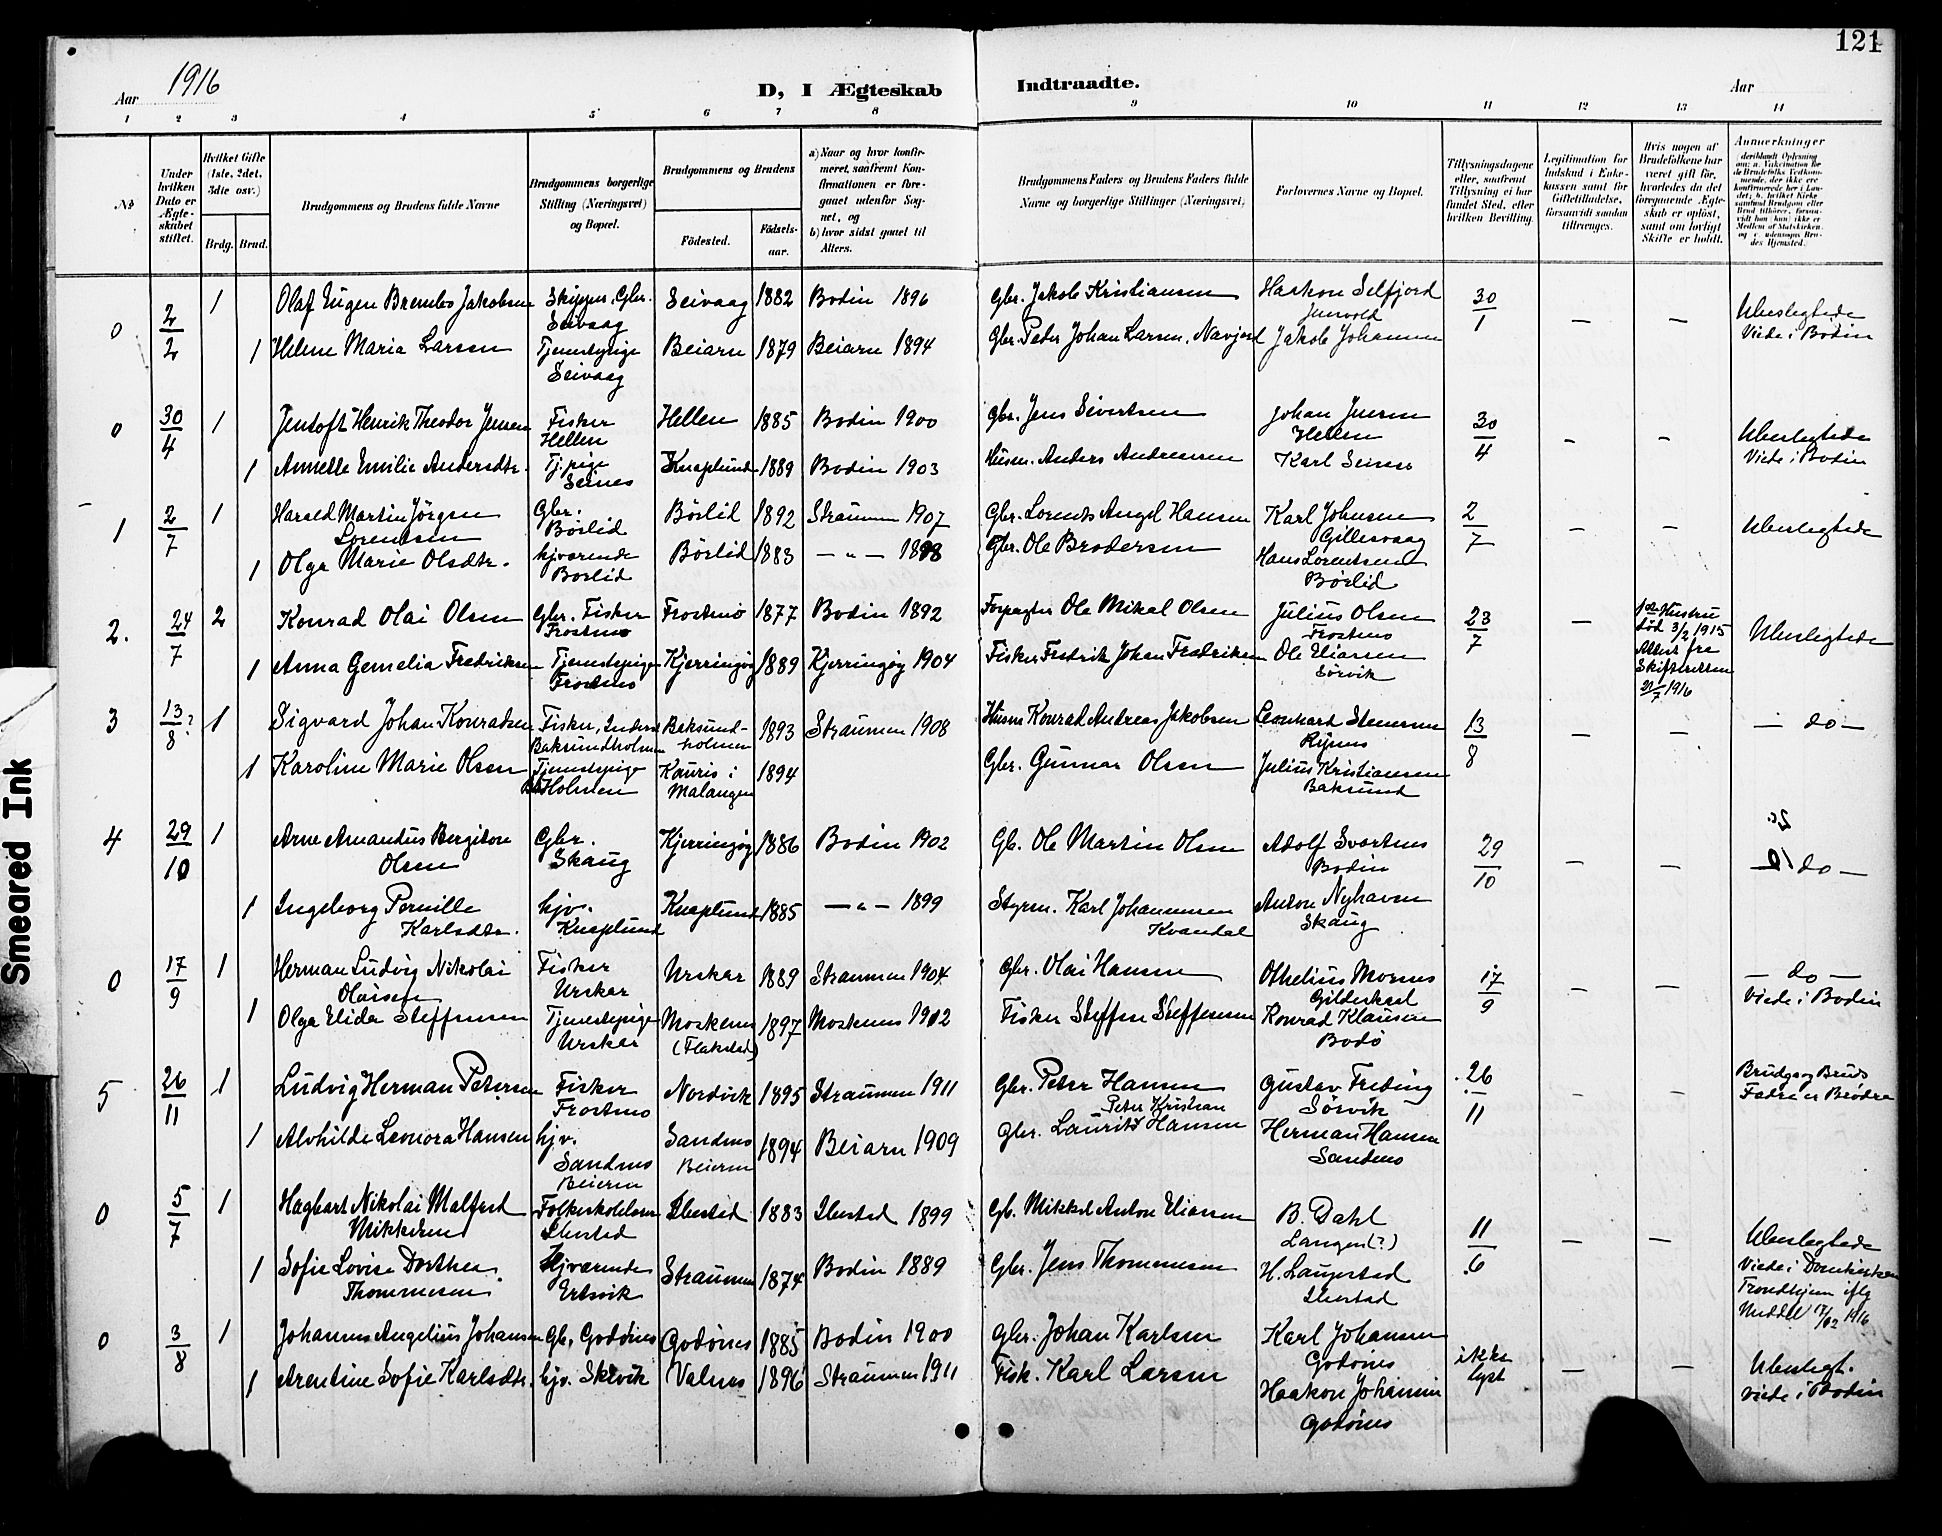 121
Aar 1916
D, I Ægteskab Indtraadte.
Aar
1 2 3 4 5 6 7 8 9 10 11 12 13 14
No
Under hvilken Dato er Ægteskabet stiftet.
Hvilket Gifte (1ste, 2det, 3die osv.)
Brdg. Brud.
Brudgommens og Brudens fulde Navne
Brudgommens borgerlige Stilling (Næringsvei) og Bopæl.
Brudgommens og Brudens
Födested. Födsels-aar.
a) Naar og hvor konfirmeret, saafremt Konfirmationen er foregaaet udenfor Sognet, og
b) hvor sidst gaaet til Alters.
Brudgommens Faders og Brudens Faders fulde Navne og borgerlige Stillinger (Næringsvei)
Forlovernes Navne og Bopæl.
Tillysningsdagene eller, saafremt Tillysning ei har fundet Sted, efter hvilken Bevilling.
Legitimation for Indskud i Enkekassen samt for Giftetilladelse, forsaavidt saadan tiltrænges.
Hvis nogen af Brudefolkene har været gift før, hvorledes da det foregaaende Ægteskab er opløst, samt om lovligt Skifte er holdt.
Anmerkninger
0 2/2 1 Olaf Eugen Jakobsen Skipper, Gbr. Seivaag Seivaag 1882 Bodin 1896 Gbr. Jakob Kristiansen Haakon Selfjord 30/1 — — Ubeslegtede
1 Helene Maria Larsen Tjenestepige Seivaag Beiarn 1879 Beiarn 1894 Gbr. Peder Johan Larsen, Navjord Jakob Johansen Viede i Bodin
0 30/4 1 Jentoft Henrik Theodor Jensen Fisker Hellen Hellen 1885 Bodin 1900 Gbr. Jens Sivertsen Johan Jensen Hellen 30/4 — — Ubeslegtede
1 Annette Emilie Andersdtr. Tj.pige Seines Knaplund 1889 Bodin 1903 Husm. Anders Andreassen Karl Seines Viede i Bodin
1 2/7 1 Harald Martin Jörgen Lorentsen Gbr. Börlid Börlid 1892 Straumen 1907 Gbr. Lorents Angel Hansen Karl Johnsen Gillesvaag 2/7 — — Ubeslegtede
1 Olga Marie Olsdtr. hjværende Börlid Börlid 1883 — " — 1898 Gbr. Ole Brodersen Hans Lorentsen Börlid
2. 24/7 2 Konrad Olai Olsen Gbr. Fisker Frostmo Frostmo 1877 Bodin 1892 Forpagter Ole Mikal Olsen Julius Olsen Frostmo 23/7 — 1ste Hustru död 3/2 1915 Attest fra Skifteretten 21/7 1916 Ubeslegtede
1 Anna Gemelia Fredriksen Tjenestepige Frostmo Kjerringöy 1889 Kjerringöy 1904 Fisker Fredrik Johan Fredriksen Ole Eliassen Sörvik
3 13/8? 1 Sigvard Johan Konradsen Fisker, Inderst Baksundholmen Baksundholmen 1893 Straumen 1908 Husm. Konrad Andreas Jakobsen Leonhard Stensen 13/8 — — — do —
1 Karoline Marie Olsen Tjenestepige Holmen Kauris i Malangen 1894 Gbr. Gunnar Olsen Julius Kristiansen Baksund
4 29/10 1 Arne Amandus Bergiton Olsen Gbr. Skaug Kjerringöy 1886 Bodin 1902 Gb. Ole Martin Olsen Adolf Svartnes Bodin 29/10 — — do —
1 Ingeborg Pernille Karlsdtr. hjv. Knaplund Knaplund 1885 — " — 1899 Styrm. Karl Johannesen Kvandal Anton Nyhavn Skaug
0 17/9 1 Herman Ludvig Nikolai Olaisen Fisker Urskar Urskar 1889 Straumen 1904 Gbr. Olai Hansen Othelius Mornes Gildeskaal 17/9 — — — do —
1 Olga Elida Steffensen Tjenestepige Urskar Moskenes (Flakstad) 1897 Moskenes 1912 Fisker Steffen Steffensen Konrad Klausen Bodö Viede i Bodin
5 26/11 1 Ludvig Herman Petersen Fisker Frostmo Nordvik 1895 Straumen 1911 Gbr. Peter Hansen Gustav Freding Sörvik 26/11 — — Brudg og Bruds Fædre er Brödre
1 Alvhilde Leonora Hansen hjv. Sandnes Beieren Sandnes Beieren 1894 Beiarn 1909 Gbr. Peter Kristian Laurits Hansen Herman Hansen Sandnes
0 5/7 1 Hagbart Nikolai Malfred Mikkelsen Ibestad Ibestad 1883 Ibestad 1899 Gb. Mikkel Anton Eliassen B. Dahl Langen (?) 11/6 — — Ubeslegtede
1 Sofie Lovise Dorthea Thommesen Hjværende Ertsvik Straumen 1874 Bodin 1889 Gbr. Jens Thommesen H. Laugestad Ibestad Viede i Domkirken Trondhjem iflg Meddel 7/12 1916
0 3/8 1 Johannes Angelius Johansen Gb. Godönes Godönes 1885 Bodin 1900 Gbr. Johan Karlsen Karl Johansen Godönes ikke lyst — — Ubeslegt.
1 Arentine Sofie Karlsdtr. hjv. Skevik Valnes 1896 Straumen 1911 Fisk. Karl Larsen Haakon Johansen Godönes Viede i Bodin
Smeared Ink